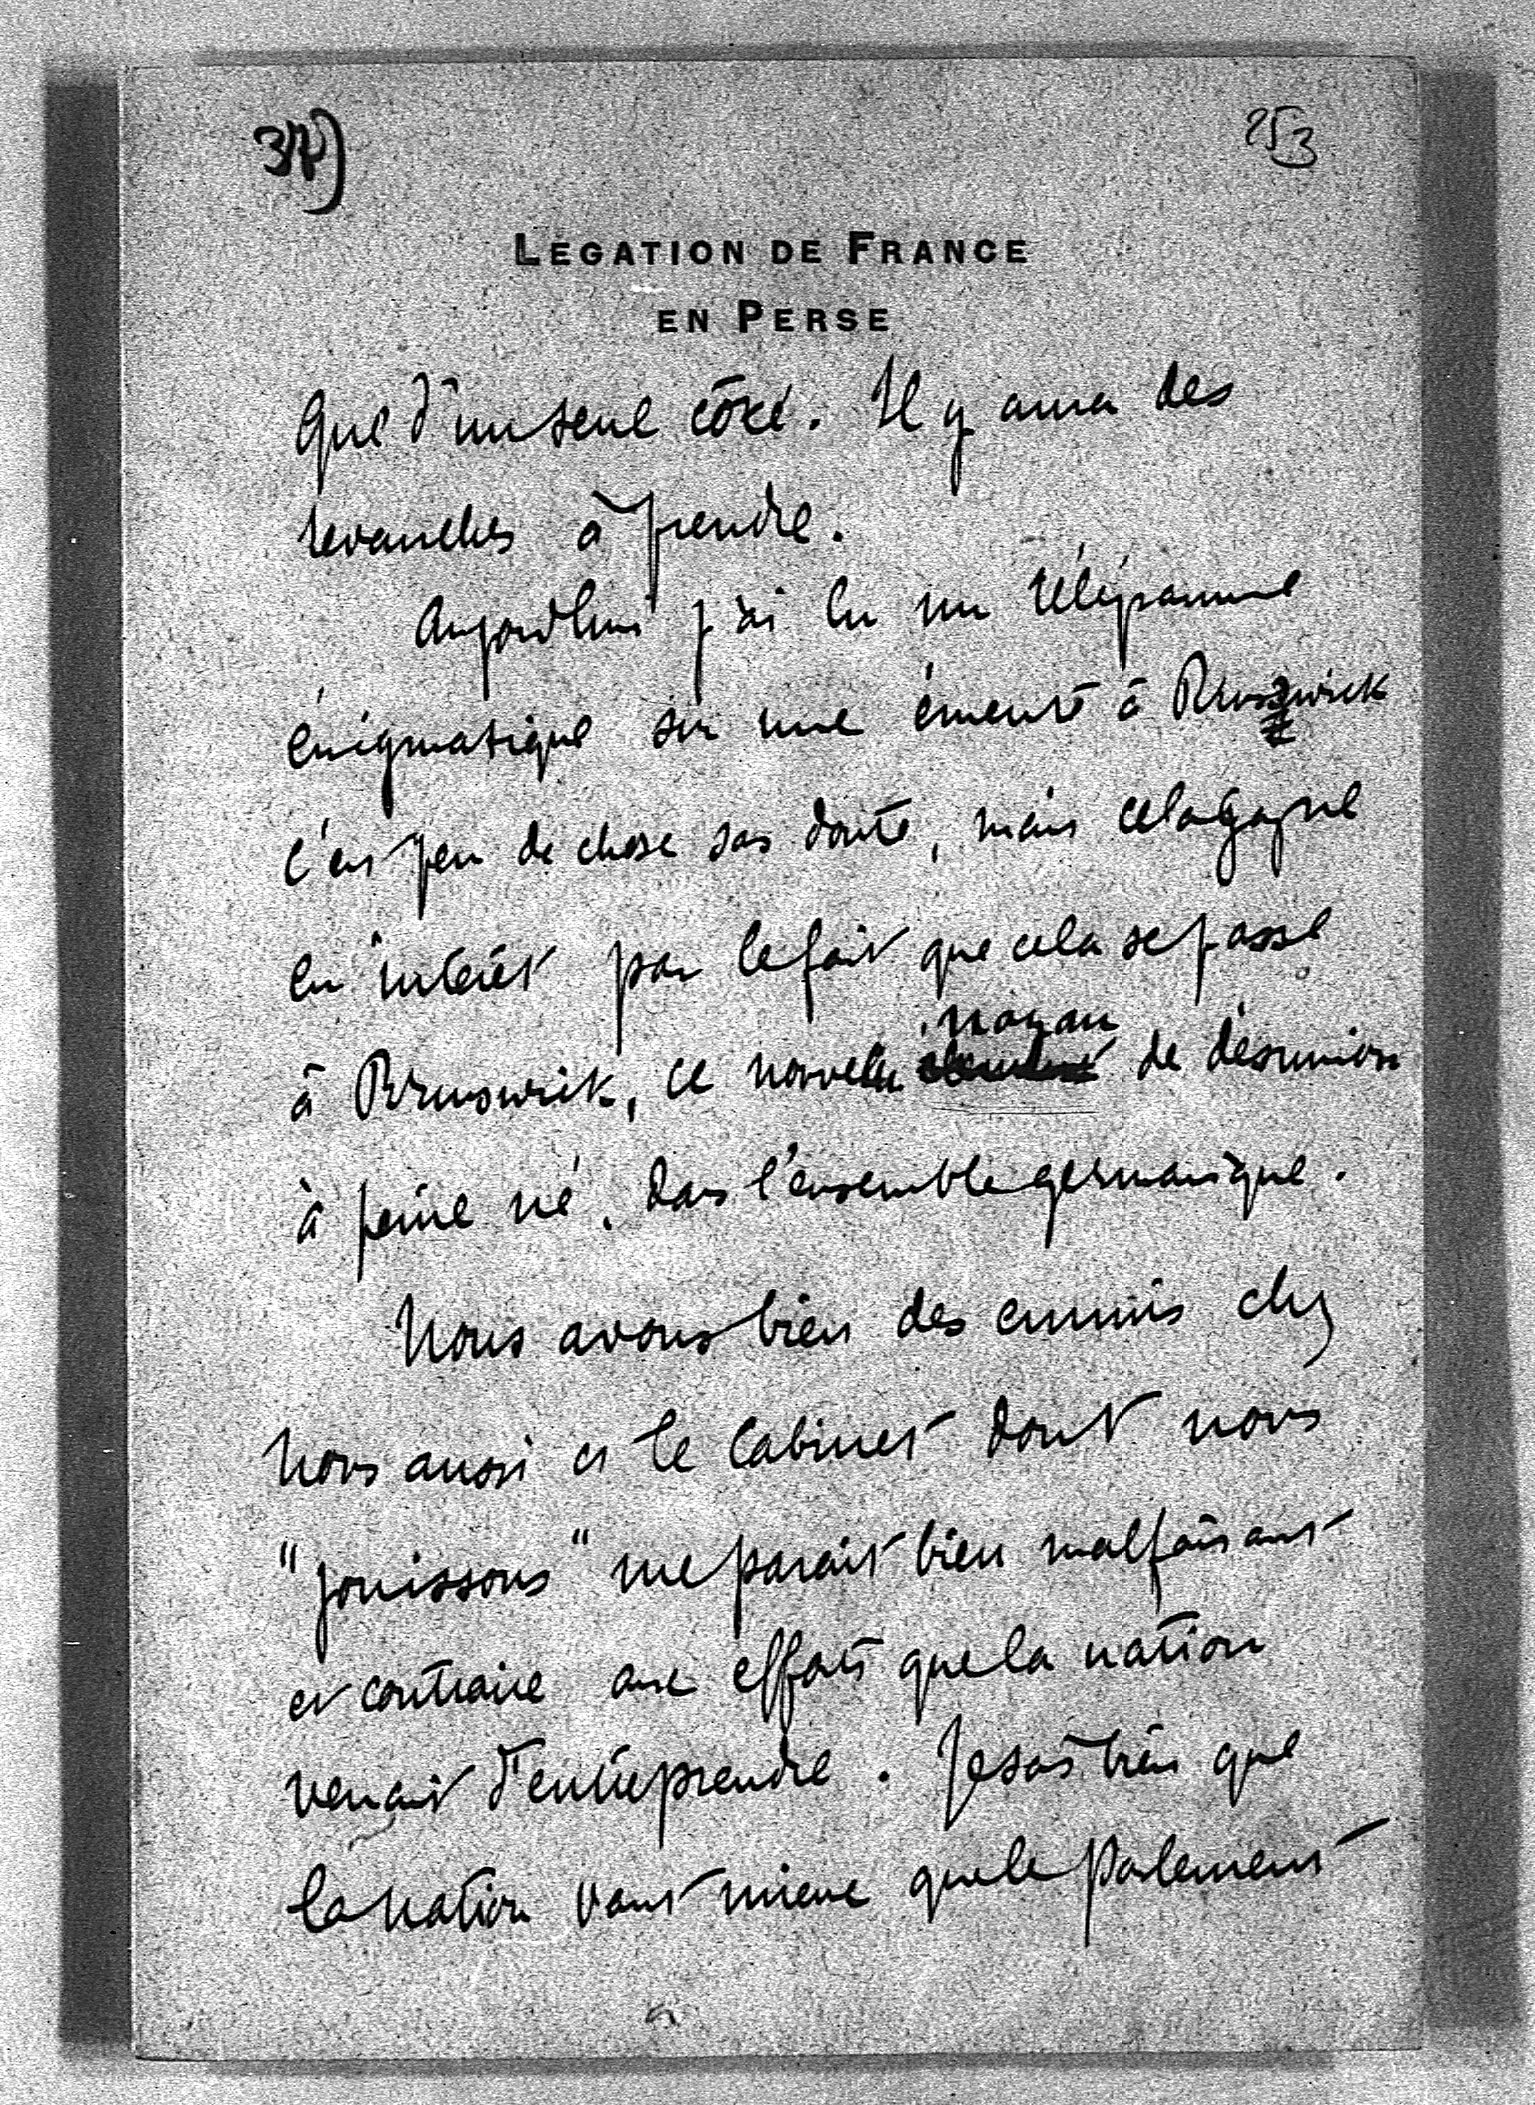 253
LEGATION DE FRANCE
EN PERSE
que d'un seul côté. Il y aura des
revanches à prendre.
Aujourdhui j'ai lu un télégramme
énigmatique sur une émeute à Brunswick
c'est peu de chose sans doute, mais cela gagne
en intérêt par le fait que cela se passe
à Brunswick, ce nouveau noyau de désunion
à peine né, dans l'ensemble germanique.
Nous avons bien des ennuis chez
nous aussi et le Cabinet dont nous
"jouissons" me parait bien malfaisant
et contraire aux efforts que la nation
venait d'entreprendre. Je sais bien que
la nation vaut mieux que le parlement